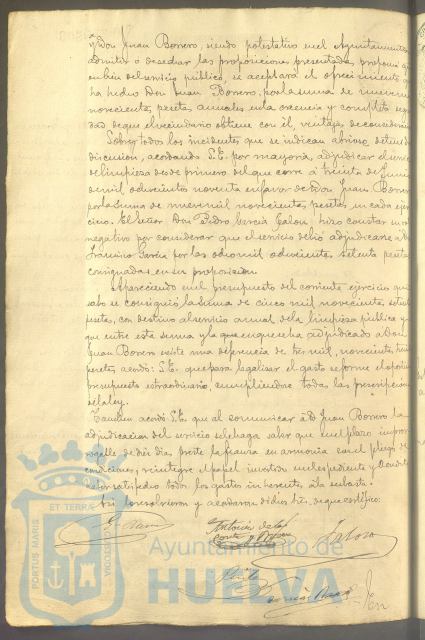 y Don Juan Borrero, siendo potestativo en el Ayuntamiento
admitir o desechar las proposiciones presentadas, propone que
en bien del servicio público, se aceptara el ofrecimiento que
ha hecho Don Juan Borrero, por la suma de nueve mil
novecientas pesetas anuales en la creencia y completa segu
ridad de que el vecindario obtiene con él, ventajas de consideración
Sobre todos los incidentes que se indican abriose, detenida
discusion, acordando S.E. por mayoría, adjudicar el servicio
de limpieza desde primero del que corre á treinta de Junio
de mil ochocientos noventa en favor de Don Juan Borrero
por la suma de nueve mil novecientas pesetas en cada ejer
cicio. El Señor Don Pedro Garcia Jalon hizo constar su voto
negativo por considerar que el servicio debió adjudicarse á Don
Francisco Garcia por las ocho mil ochocientas setenta pesetas
consignadas en su proposicion.
Apareciendo en el presupuesto del corriente ejercicio que
solo se consignó la suma de cinco mil novecientas setenta
pesetas, con destino al servicio anual de la limpieza pública y
que entre esta suma y la que en que se ha adjudicado a Don
Juan Borrero existe una diferencia de tres mil, novecientas, treinta
pesetas acordó S.E. que para legalizar el gasto se forme el oportuno
presupuesto extraordinario, cumpliendose todas las prescripciones
de la ley.
Tambien acordó S.E. que al comunicar á D. Juan Borrero la
adjudicacion del servicio se le haga saber que en el plazo impror
rogable de diez dias, preste la fianza en armonia con el pliego de
condiciones, reintegre el papel invertido en el espediente y
satisfecho todos los gastos inherentes á la subasta.
Asi lo resolvieron y acordaron dichos Sres. de que certifico:
ET TERRAE
PORTUS MARIS
CUSTODIA
Ayuntamiento de
HUELVA